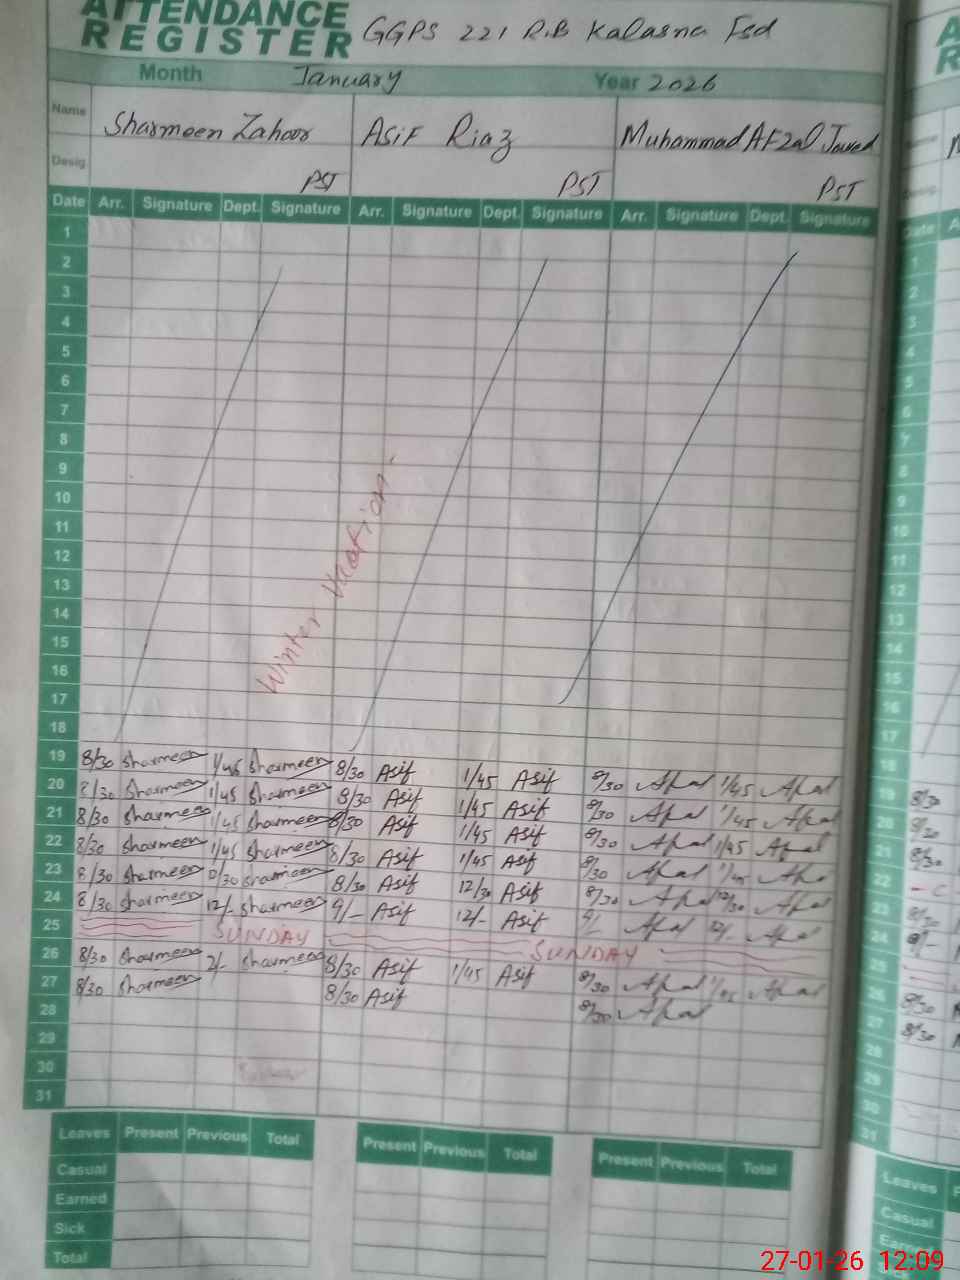 ATTENDANCE
REGISTER GGPS 221 R.B Kalasna Fsd
Month January Year 2026
Name Sharmeen Zahoor Asif Riaz Muhammad AFzal Javed
Desig. PST PST PST
Date Arr. Signature Dept. Signature Arr. Signature Dept. Signature Arr. Signature Dept. Signature
1
2
3
4
5
6
7
8
9
10
11
12
13
14
15
16
17
18
Winter Vacation
19 8/30 Sharmeen 1/45 Sharmeen 8/30 Asif 1/45 Asif 8/30 Afzal 1/45 Afzal
20 8/30 Sharmeen 1/45 Sharmeen 8/30 Asif 1/45 Asif 8/30 Afzal 1/45 Afzal
21 8/30 Sharmeen 1/45 Sharmeen 8/30 Asif 1/45 Asif 8/30 Afzal 1/45 Afzal
22 8/30 Sharmeen 1/45 Sharmeen 8/30 Asif 1/45 Asif 8/30 Afzal 1/45 Afzal
23 8/30 Sharmeen 12/30 Sharmeen 8/30 Asif 12/30 Asif 8/30 Afzal 12/30 Afzal
24 8/30 Sharmeen 12/- Sharmeen 9/- Asif 12/- Asif 9/- Afzal 12/- Afzal
25 SUNDAY SUNDAY
26 8/30 Sharmeen 2/- Sharmeen 8/30 Asif 1/45 Asif 8/30 Afzal 1/45 Afzal
27 8/30 Sharmeen 8/30 Asif 8/30 Afzal
28
29
30
31
Leaves Present Previous Total Present Previous Total Present Previous Total
Casual
Earned
Sick
Total
Date
1
2
3
4
5
6
7
8
9
10
11
12
13
14
15
16
17
18
19 8/30
20 8/30
21 8/30
22 - C
23 8/30
24 9/-
25
26 8/30
27 8/30
28
29
30
31
Leaves
Casual
27-01-26 12:09